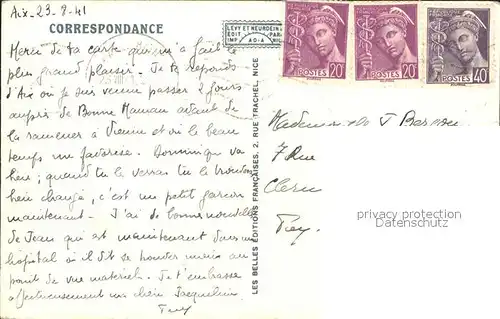 Aix-23-8-41
CORRESPONDANCE
LÉVY ET NEURDEIN
EDIT. PAR
IMP. AD-A
Merci de ta carte qui m'a fait le
plus grand plaisir. Je te réponds
d'Aix où je suis venue passer 2 jours
auprès de Bonne Maman avant de
la ramener à Vienne et où le beau
temps me favorise. Dominique va
bien; quand tu le verras tu le
bien changé, c'est un petit garçon
maintenant. J'ai de bonnes nouvelles
de Jean qui est maintenant dans un
hôpital où il dit se trouver mieux au
point de vue matériel. Je t'embrasse
affectueusement ma chère Jacqueline
LES BELLES ÉDITIONS FRANÇAISES, 2, RUE TRACHEL, NICE
POSTES 20c
POSTES 20c
POSTES 40c
Mademoiselle J
7 Rue
privacy protection
Datenschutz